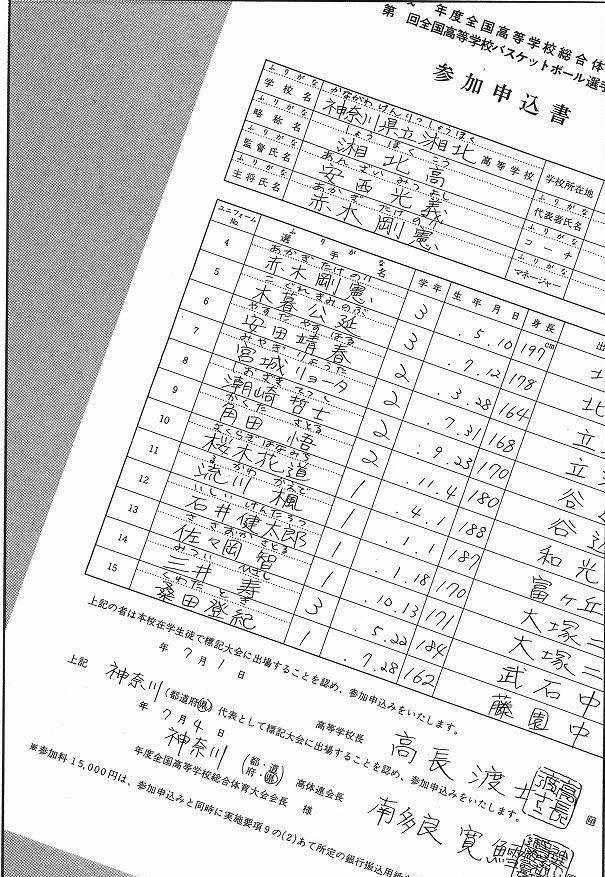 年度全国高等学校総合体
第　回全国高等学校バスケットボール選手
参加申込書
ふりがな かながわけんりつしょうほく
学校名 神奈川県立湘北高等学校 学校所在地
ふりがな しょうほくこう
略称名 湘北高 代表者氏名
ふりがな あんざいみつよし ふりがな
監督氏名 安西光義 コーチ
ふりがな あかぎたけのり ふりがな
主将氏名 赤木剛憲 マネージャー
ユニフォームNo. ふりがな 選手名 学年 生年月日 身長 出
あかぎたけのり
4 赤木剛憲 3 .5.10 197cm 北
こぐれきみのぶ
5 木暮公延 3 .7.12 178 北
やすだやすはる
6 安田靖春 2 .3.28 164 立
みやぎりょうた
7 宮城リョータ 2 .7.31 168 立
しおざきてつし
8 潮崎哲士 2 .9.23 170 谷
かくたさとる
9 角田悟 2 .11.4 180 谷
さくらぎはなみち
10 桜木花道 1 .4.1 188 和光
るかわかえで
11 流川楓 1 .1.1 187 富ヶ丘
いしいけんたろう
12 石井健太郎 1 .1.18 170 大塚二
ささおかさとる
13 佐々岡智 1 .10.13 171 大塚二
みついひさし
14 三井寿 3 .5.22 184 武石中
くわたとき
15 桑田登紀 1 .7.28 162 藤園中
上記の者は本校在学生徒で標記大会に出場することを認め、参加申込みをいたします。
年 7月 1日
高等学校長 高長渡士 印
上記 神奈川(都道府県)代表として標記大会に出場することを認め、参加申込みをいたします。
年 7月 4日
神奈川(都・道府・県)高体連会長 南多良寛鱈
年度全国高等学校総合体育大会会長　様
※参加料15,000円は、参加申込みと同時に実施要項9の(2)あて所定の銀行振込用紙